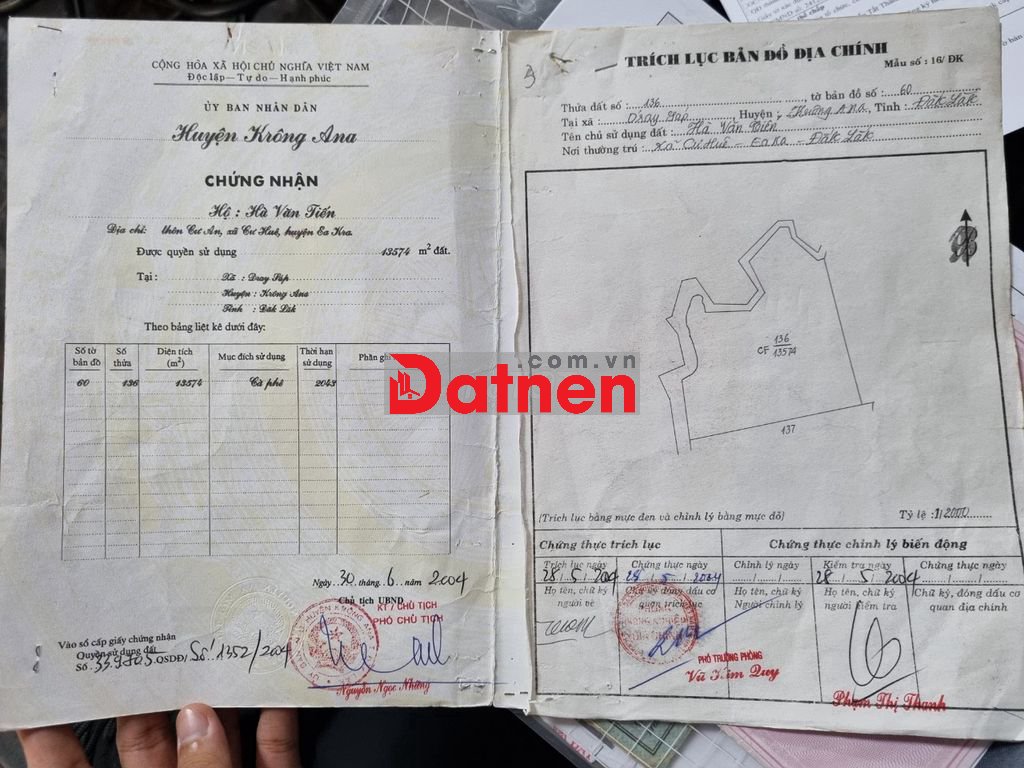 CỘNG HÒA XÃ HỘI CHỦ NGHĨA VIỆT NAM
Độc lập - Tự do - Hạnh phúc
ỦY BAN NHÂN DÂN
Huyện Krông Ana
CHỨNG NHẬN
Hộ : Hà Văn Tiến
Địa chỉ: thôn Cư An, xã Cư Huê, huyện Ea Kra.
Được quyền sử dụng 13574 m² đất.
Tại : Xã : Dray Sáp
Huyện : Krông Ana
Tỉnh : Đăk Lăk
Theo bảng liệt kê dưới đây:
Số tờ bản đồ Số thửa Diện tích (m²) Mục đích sử dụng Thời hạn sử dụng Phần ghi
60 136 13574 Cà phê 2043
Ngày 30 tháng 6 năm 2004
Chủ tịch UBND
KT/ CHỦ TỊCH
PHÓ CHỦ TỊCH
Nguyễn Ngọc Nhưng
Vào sổ cấp giấy chứng nhận
Quyền sử dụng đất
Số QSDĐ/ Số 1352/2004
TRÍCH LỤC BẢN ĐỒ ĐỊA CHÍNH
Mẫu số : 16/ ĐK
Thửa đất số : 136 tờ bản đồ số : 60
Tại xã : Dray Sáp, Huyện : Ana, Tỉnh : Đăk Lăk
Tên chủ sử dụng đất : Hà Văn
Nơi thường trú : Xã Cư Huê - Ea Ka - Đăk Lăk
CF 136
13574
137
Datnen
.com.vn
(Trích lục bằng mực đen và chỉnh lý bằng mực đỏ)
Tỷ lệ : 1/2000
Chứng thực trích lục
Chứng thực chỉnh lý biến động
Trích lục ngày Chứng thực ngày Chỉnh lý ngày Kiểm tra ngày Chứng thực ngày
28/5/2004 28/5/2004 .../.../... 28/5/2004 .../.../...
Họ tên, chữ ký người vẽ
Chữ ký đóng dấu cơ quan trích lục
Họ tên, chữ ký Người chỉnh lý
Họ tên, chữ ký người kiểm tra
Chữ ký, đóng dấu cơ quan địa chính
PHÓ TRƯỞNG PHÒNG
Vũ Kim Quy
Phạm Thị Thanh